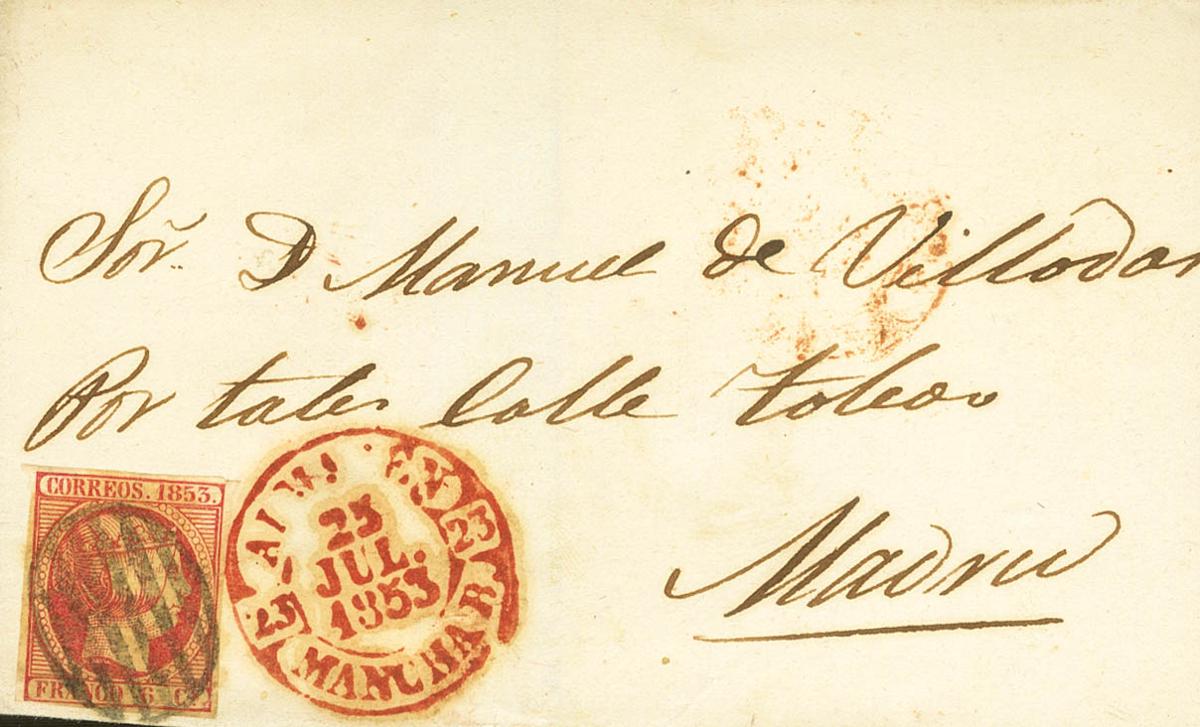 Sor. D Manuel de Villodar
Por tales Calle toledo
Madrid
CORREOS. 1853.
FRANCO 6 C
25
JUL.
1853
23
23
MANCHA B